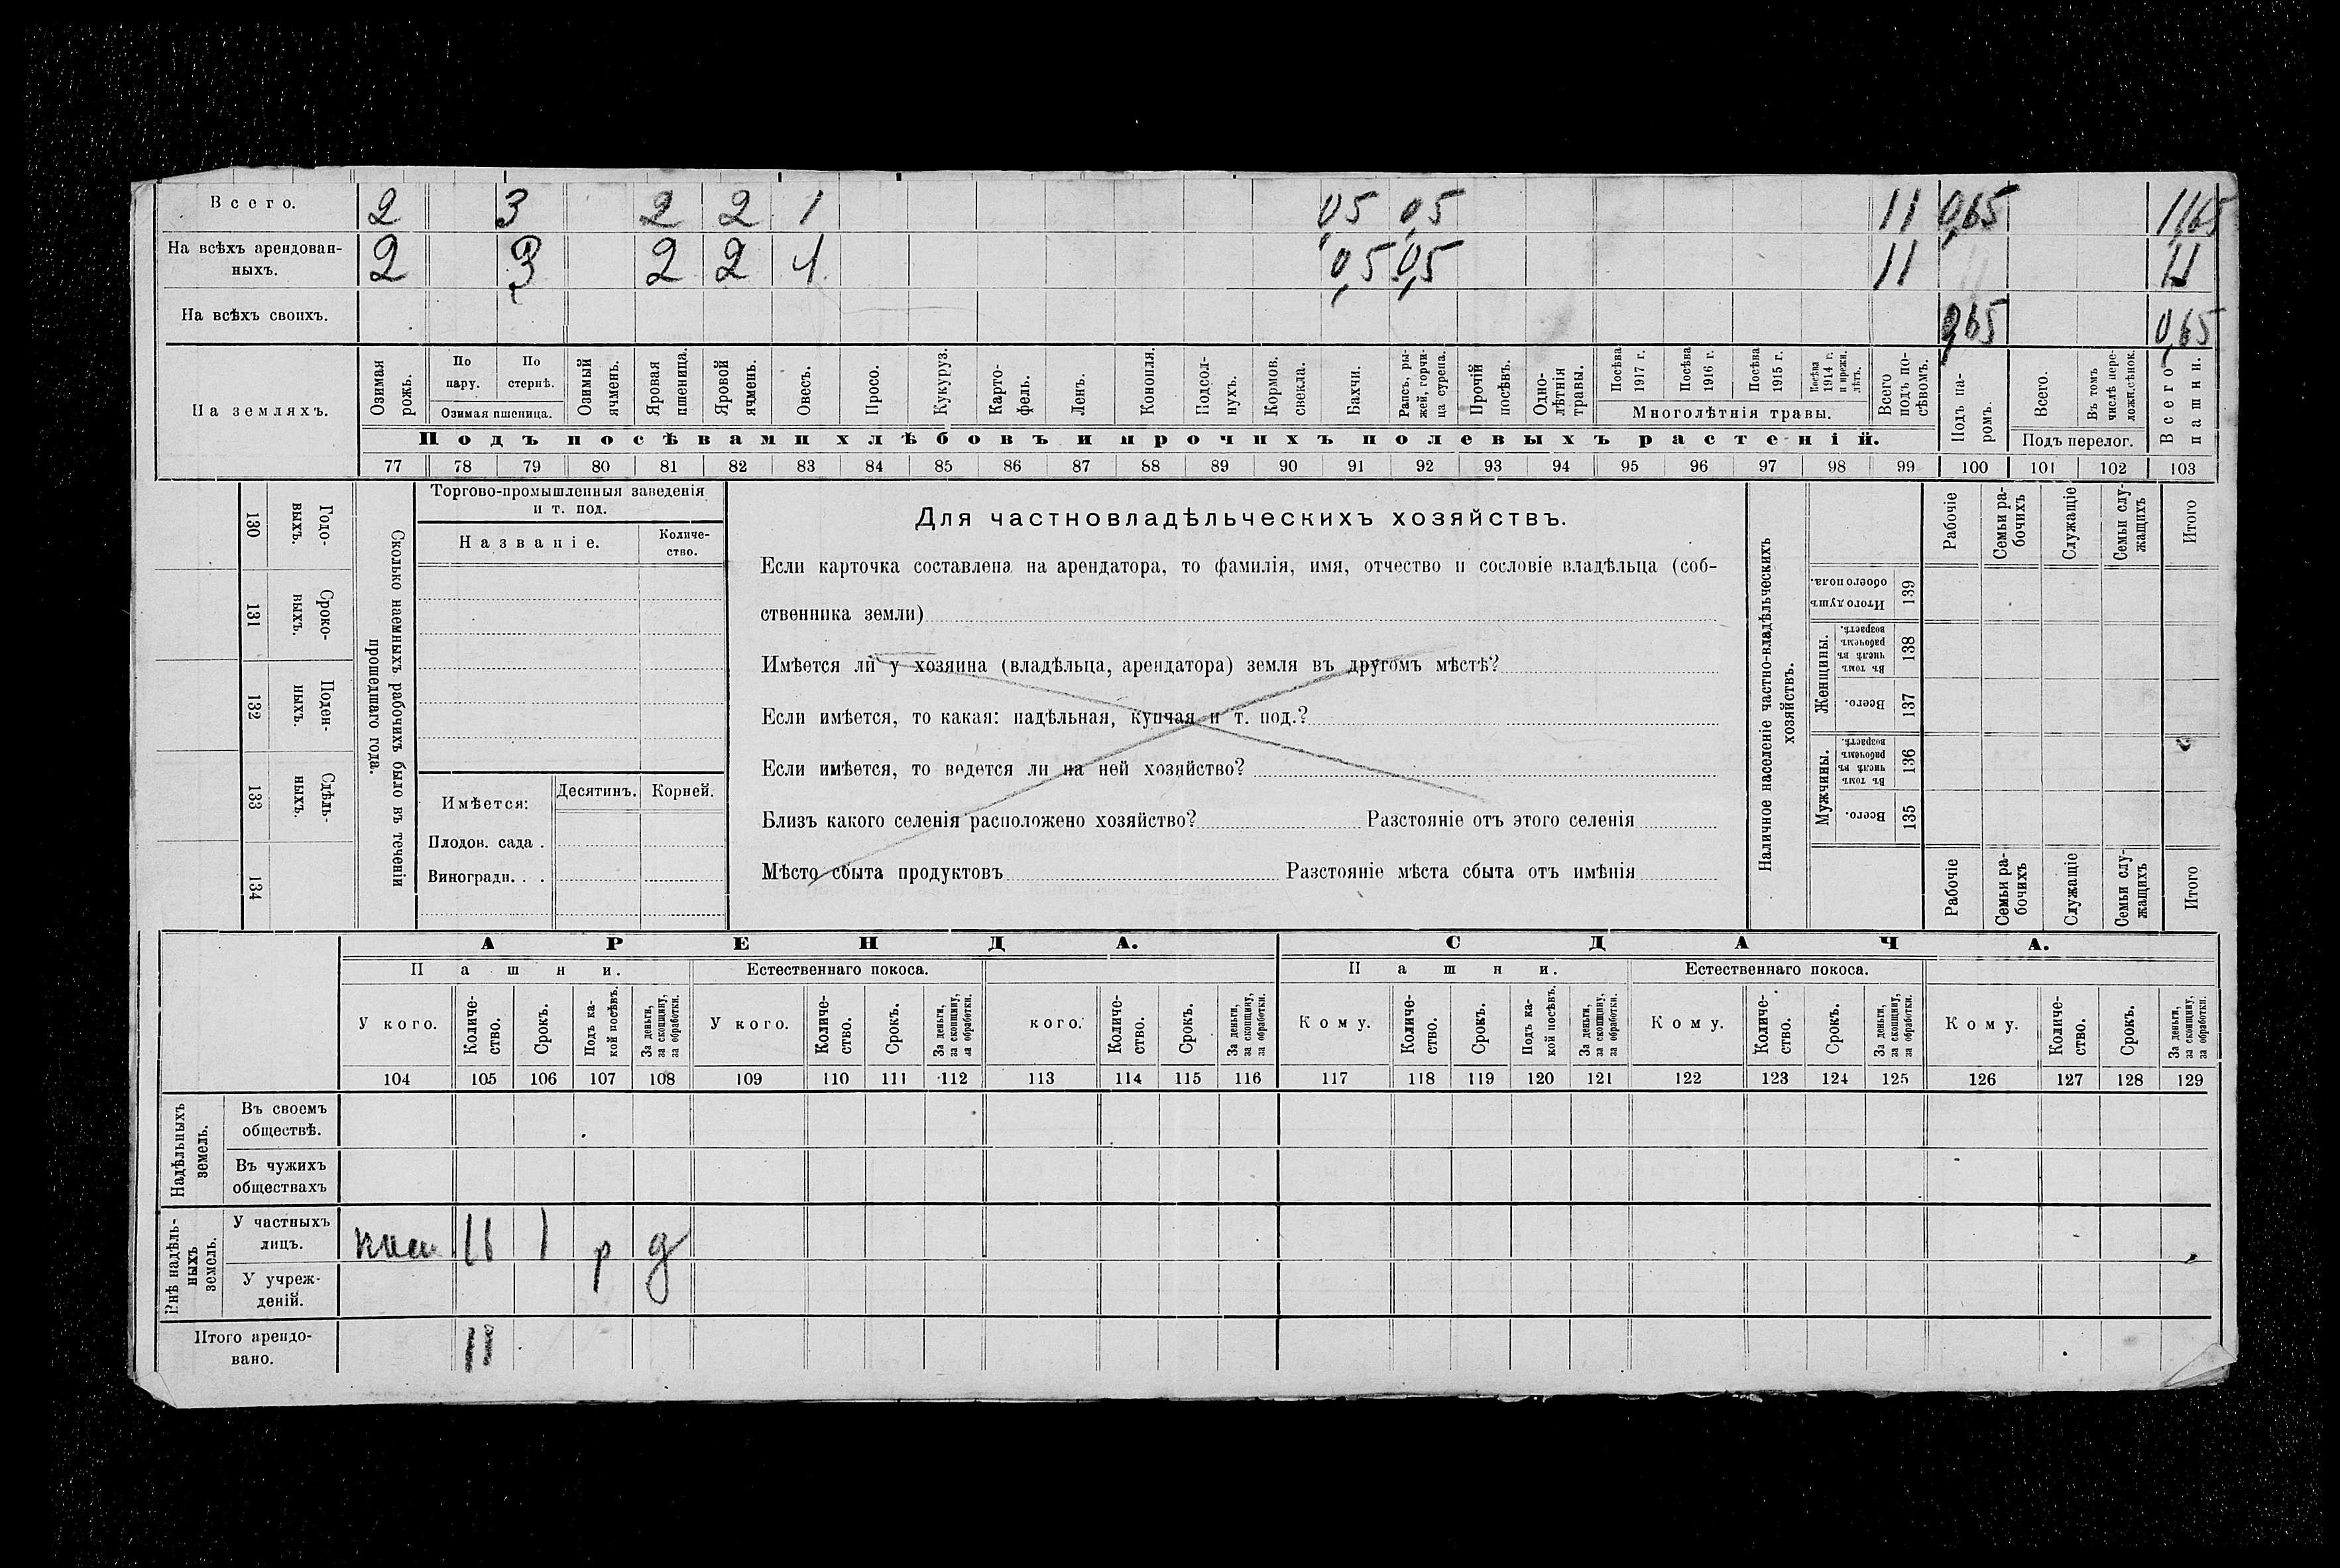 Всего. 2 3 2 2 1 0,5 0,5 11 0,65 11,65
На всѣхъ арендован-
ныхъ. 2 3 2 2 1 0,5 0,5 11 11
На всѣхъ своихъ. 0,65 0,65
На земляхъ.
Озимая рожь.
По пару.
По стернѣ.
Озимая пшеница.
Озимый ячмень.
Яровая пшеница.
Яровой ячмень.
Овесъ.
Просо.
Кукуруз.
Карто-
фель.
Ленъ.
Конопля.
Подсол-
нухъ.
Кормов. свекла.
Бахчи.
Рапсъ, ры-
жей, горчи-
ца сурепа.
Прочій посѣвъ.
Одно-
лѣтнія травы.
Посѣва 1917 г.
Посѣва 1916 г.
Посѣва 1915 г.
Посѣва 1914 г. и прежн. лѣтъ.
Многолѣтнія травы.
Всего подъ по-
сѣвомъ.
Подъ па-
ромъ.
Всего.
Въ томъ числѣ пере-
ложн. сѣнок.
Подъ перелог.
Всего пашни.
Подъ посѣвами хлѣбовъ и прочихъ полевыхъ растеній.
77 78 79 80 81 82 83 84 85 86 87 88 89 90 91 92 93 94 95 96 97 98 99 100 101 102 103
130 Годо-
выхъ.
131 Сроко-
ныхъ.
132 Поден-
ныхъ.
133 Сдѣль-
ныхъ.
134
Сколько наемныхъ рабочихъ было въ теченіи
прошедшаго года.
Торгово-промышленныя заведенія
и т. под.
Названіе.
Количе-
ство.
Имѣется:
Десятинъ.
Корней.
Плодов. сада .
Виноградн. . .
Для частновладѣльческихъ хозяйствъ.
Если карточка составлена на арендатора, то фамилія, имя, отчество и сословіе владѣльца (соб-
ственника земли)
Имѣется ли у хозяина (владѣльца, арендатора) земля въ другомъ мѣстѣ?
Если имѣется, то какая: надѣльная, купчая и т. под.?
Если имѣется, то ведется ли на ней хозяйство?
Близъ какого селенія расположено хозяйство? Разстояніе отъ этого селенія
Мѣсто сбыта продуктовъ Разстояніе мѣста сбыта отъ имѣнія
Наличное населеніе частно-владѣльческихъ
хозяйствъ.
Рабочіе
Семьи ра-
бочихъ
Служащіе
Семьи слу-
жащихъ
Итого
Итого душъ обоего пола. 139
Женщины.
Въ томъ числѣ въ рабочемъ возрастѣ. 138
Всего. 137
Мужчины.
Въ томъ числѣ въ рабочемъ возрастѣ. 136
Всего. 135
Рабочіе
Семьи ра-
бочихъ
Служащіе
Семьи слу-
жащихъ
Итого
АРЕНДА. СДАЧА.
Пашни. Естественнаго покоса. Пашни. Естественнаго покоса.
У кого.
Количе-
ство.
Срокъ.
Подъ ка-
кой посѣвъ.
За деньги,
за скопщину,
за обработки.
У кого.
Количе-
ство.
Срокъ.
За деньги,
за скопщину,
за обработки.
кого.
Количе-
ство.
Срокъ.
За деньги,
за скопщину,
за обработки.
Кому.
Количе-
ство.
Срокъ.
Подъ ка-
кой посѣвъ.
За деньги,
за скопщину,
за обработки.
Кому.
Количе-
ство.
Срокъ.
За деньги,
за скопщину,
за обработки.
Кому.
Количе-
ство.
Срокъ.
За деньги,
за скопщину,
за обработки.
104 105 106 107 108 109 110 111 112 113 114 115 116 117 118 119 120 121 122 123 124 125 126 127 128 129
Надѣльныхъ
земель.
Въ своемъ
обществѣ.
Въ чужихъ
обществахъ
Внѣ надѣль-
ныхъ
земель.
У частныхъ
лицъ. 11 1 р д
У учреж-
деній.
Итого арендо-
вано. 11